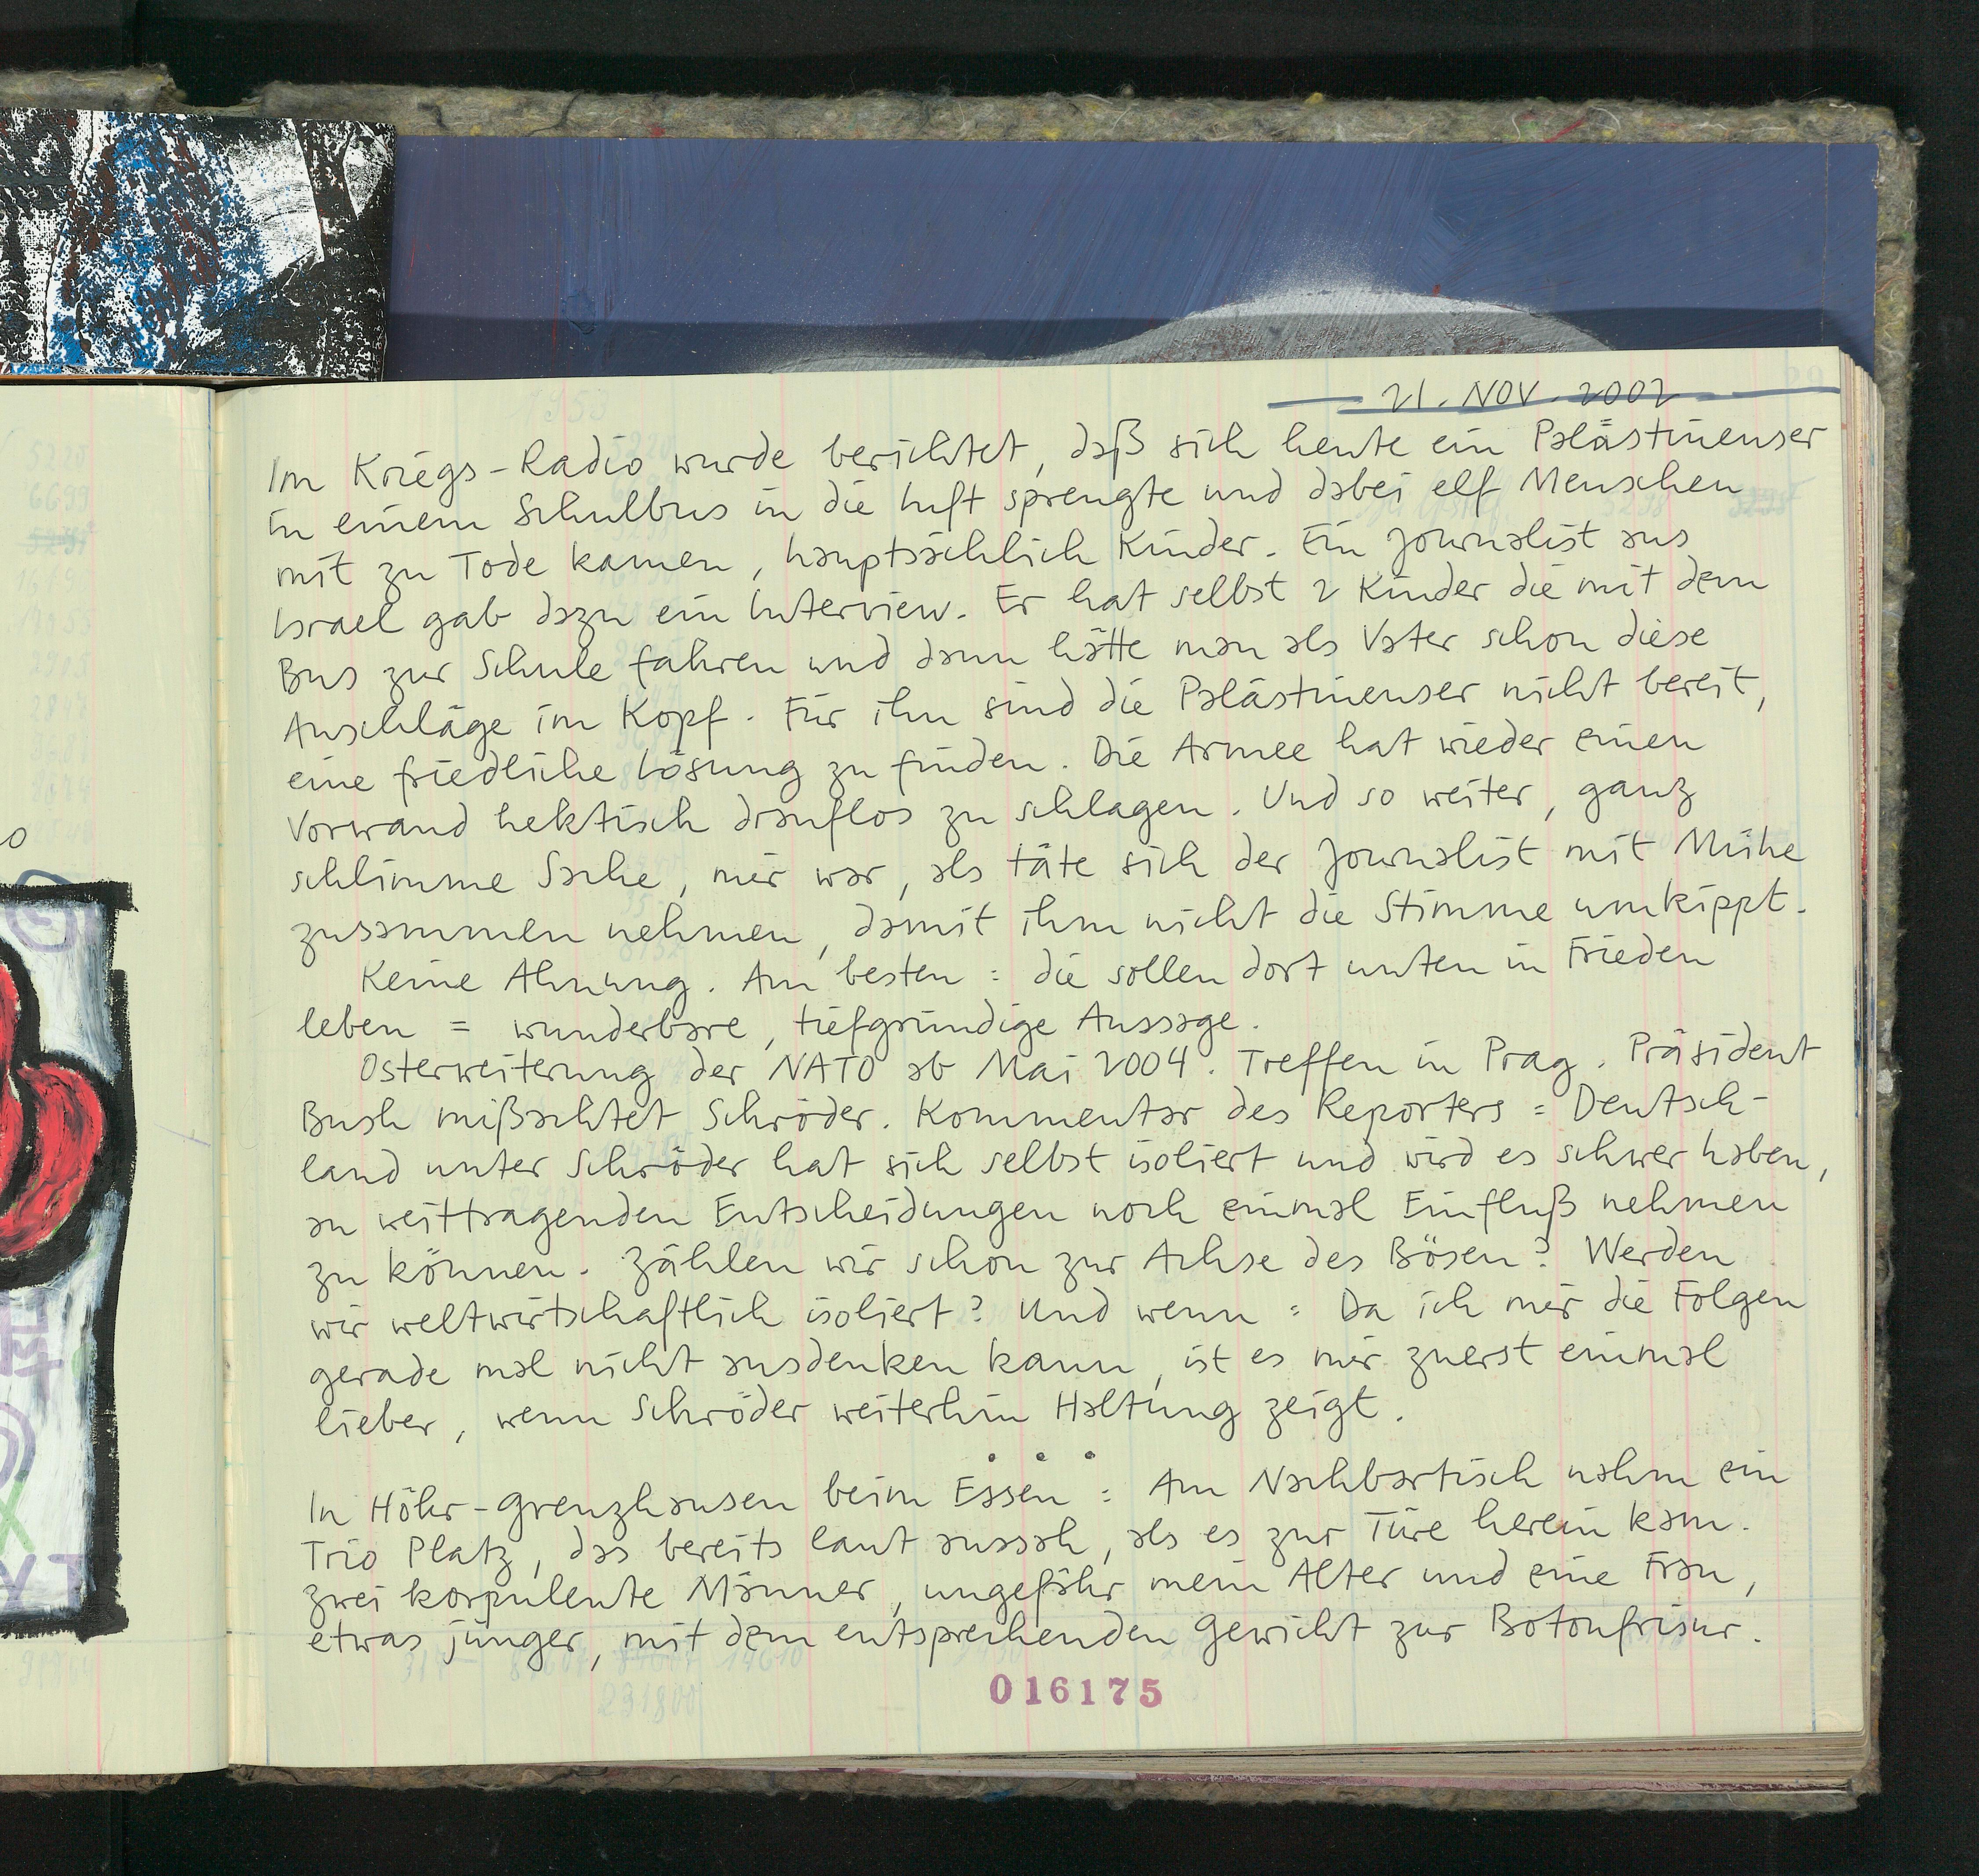 21. NOV. 2002
Im Kriegs-Radio wurde berichtet, daß sich heute ein Palästinenser
in einem Schulbus in die Luft sprengte und dabei elf Menschen
mit zu Tode kamen, hauptsächlich Kinder. Ein Journalist aus
Israel gab dazu ein Interview. Er hat selbst 2 Kinder die mit dem
Bus zur Schule fahren und dann hätte man als Vater schon diese
Anschläge im Kopf. Für ihn sind die Palästinenser nicht bereit,
eine friedliche Lösung zu finden. Die Armee hat wieder einen
Vorwand hektisch drauflos zu schlagen. Und so weiter, ganz
schlimme Sache, mir war, als täte sich der Journalist mit Mühe
zusammen nehmen, damit ihm nicht die Stimme umkippt.
Keine Ahnung. Am besten: die sollen dort unten in Frieden
leben = wunderbare, tiefgründige Aussage.
Osterweiterung der NATO ab Mai 2004. Treffen in Prag. Präsident
Bush mißachtet Schröder. Kommentar des Reporters: Deutsch-
land unter Schröder hat sich selbst isoliert und wird es schwer haben,
an weittragenden Entscheidungen noch einmal Einfluß nehmen
zu können. Zählen wir schon zur Achse des Bösen? Werden
wir weltwirtschaftlich isoliert? Und wenn: Da ich mir die Folgen
gerade mal nicht ausdenken kann, ist es mir zuerst einmal
lieber, wenn Schröder weiterhin Haltung zeigt.
In Höhr-Grenzhausen beim Essen: Am Nachbartisch nahm ein
Trio Platz, das bereits laut aussah, als es zur Türe herein kam.
Zwei korpulente Männer, ungefähr mein Alter und eine Frau,
etwas jünger, mit dem entsprechenden Gewicht zur Botonfrisur.
016175